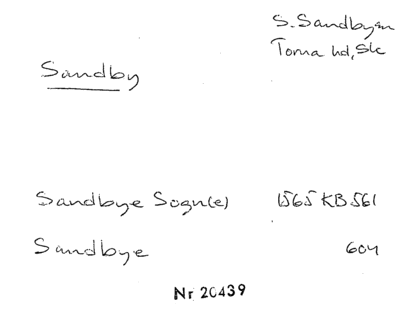 S. Sandbysn
Torna hd, Sk
Sandby
Sandbye Sogn(e) 1565 KB 561
Sandbye 604
Nr 20439